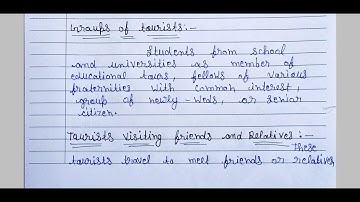 Groups of tourists:-
Students from school
and universities as member of
educational tours, fellows of various
fraternities with common interest,
group of newly-weds, or senior
citizen.
Tourists Visiting friends and Relatives:-
These
tourists travel to meet friends or relatives